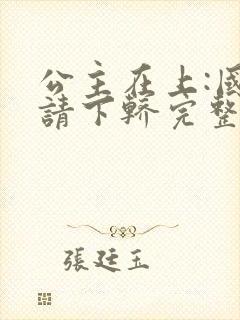 公主在上:國
請下轎完整
張廷玉